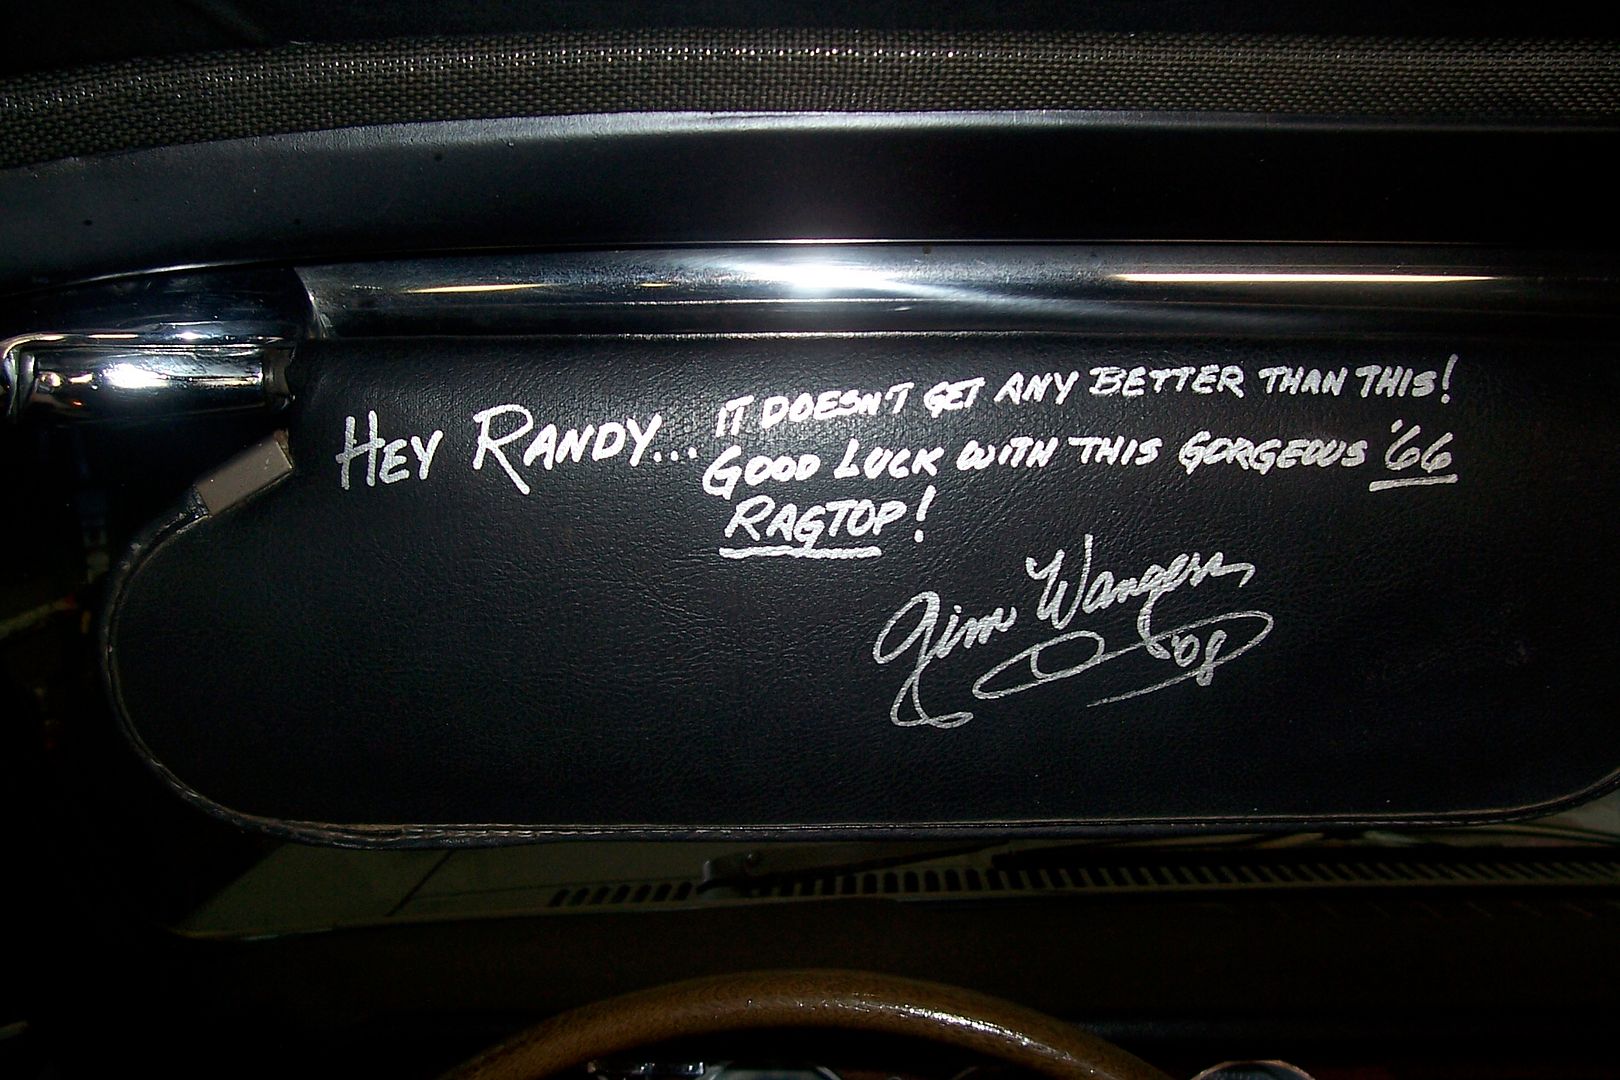 HEY RANDY... IT DOESN'T GET ANY BETTER THAN THIS!
GOOD LUCK WITH THIS GORGEOUS '66
RAGTOP!
Jim Wangers
'08